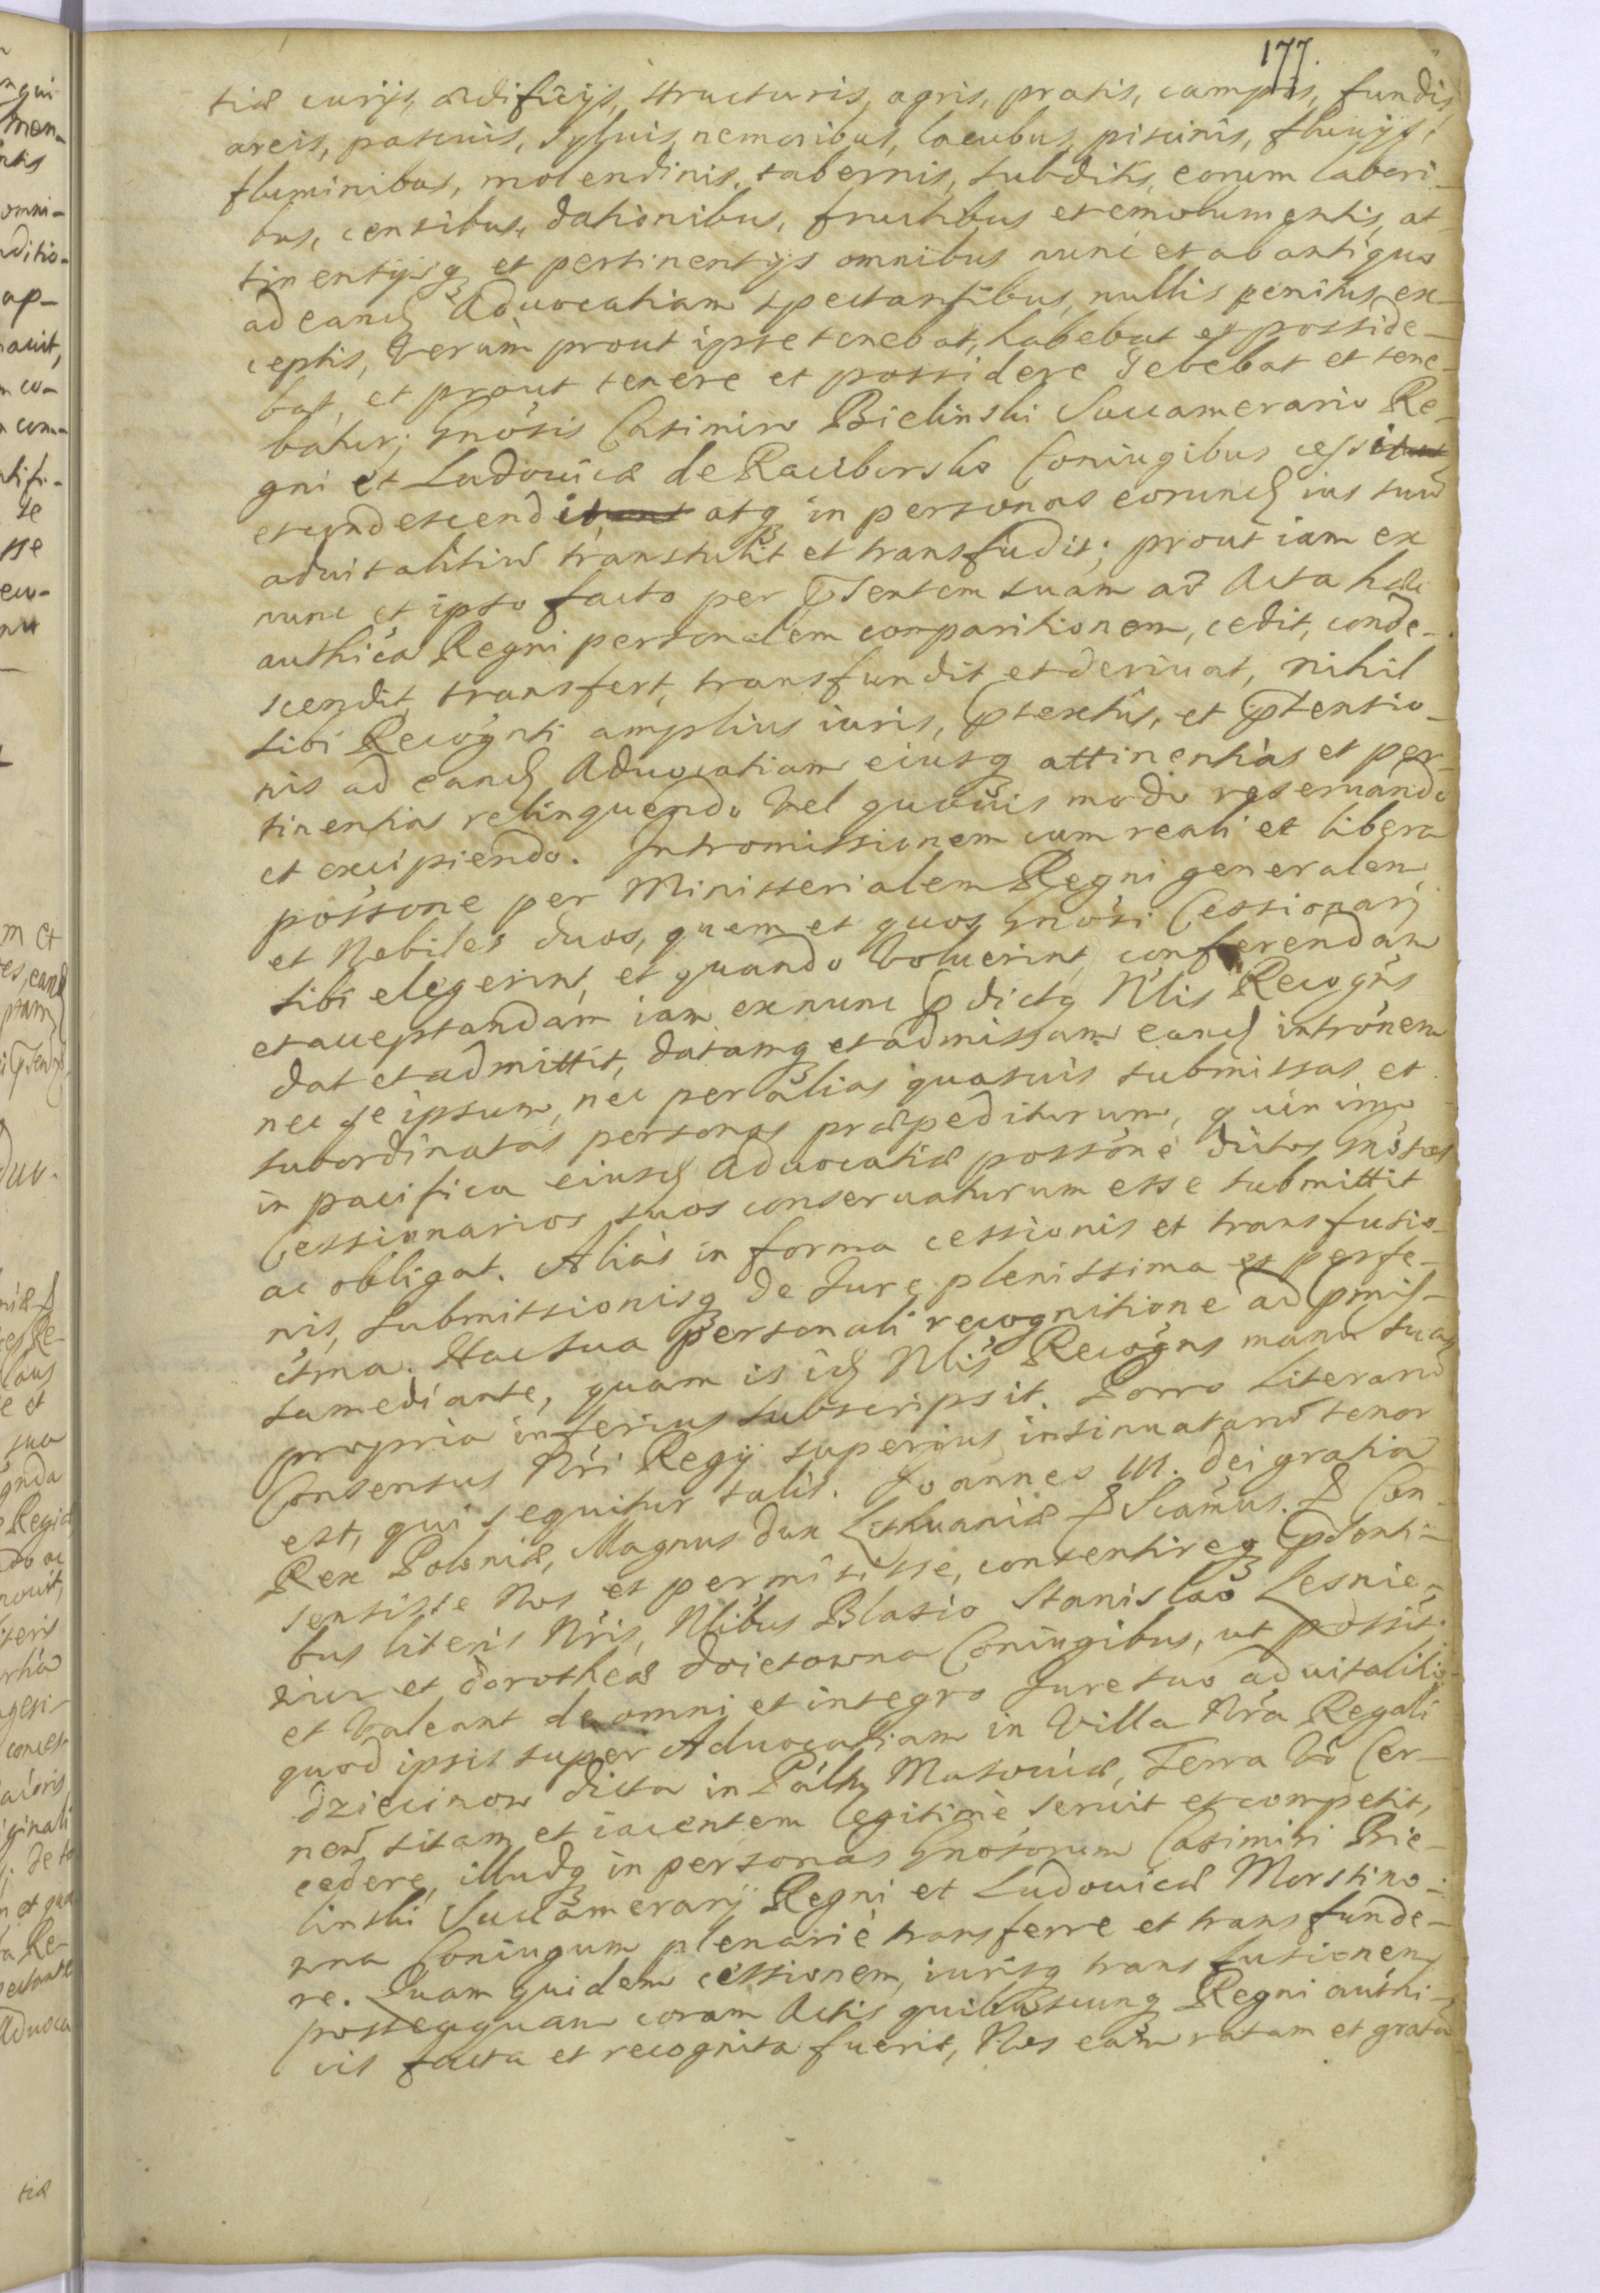 177.
tiæ curijs, ædificijs, structuris, agris, pratis, campis, fundis
areis, pascuis, sylvis, nemoribus, lacubus, piscinis, fluvijs,
fluminibus, molendinis, tabernis, subditis, eorum labori-
bus, censibus, dationibus, fructibus et emolumentis, at-
tinentijsq et pertinentijs omnibus nunc et ab antiquo
ad eand Aduocatiam spectantibus, nullis penitus ex-
ceptis, Verùm prout ipse tenebat, habebat et posside-
bat, et prout tenere et possidere debebat et tene-
batur; Gnosis Casimiro Bielinski Succamerario Re-
gni et Ludouicæ de Raciborsko Coniugibus cessit
et condescendit atq in personas eorund ius suũ
aduitalitiũ transtulit et transfudit; prout iam ex
nunc et ipso facto per pñsentem suam ad Acta hæc
authica Regni personalem comparitionem, cedit, conde-
scendit, transfert, transfundit et deriuat, nihil
sibi Recognti amplius iuris, ptextus, et ptensio-
nis ad eand Aduocatiam eiusq attinentias et per-
tinentias relinquendo Vel quouis modo reseruando
et excipiendo. Intromissionem cum reali et libera
possone per Ministerialem Regni generalem
et Nobiles duos, quem et quos Gnosi Cessionarij
sibi elegerint, et quando Voluerint, conferendam
et acceptandam iam ex nunc pdictq Nlis Recogns
dat et admittit, datamq et admissam eand intronem
nec se ipsum, nec per alias quasuis submissas et
subordinatas personas præpediturum, quin imo
in pacifica eiusd Aduocatiæ possone dictos Gnosos
Cessionarios suos conseruaturum esse submittit
ac obligat. Alias in forma cessionis et transfusio-
nis, submissionisq de Jure plenissima et perfe-
ctma. Hac sua personali recognitione ad pmis-
sa mediante, quam is id Nlis Recogns manu sua
propria inferius subscripsit. Porro Literarũ
Consensus Nri Regij superius insinuatarũ tenor
est, qui sequitur talis. Joannes III. Dei gratia
Rex Poloniæ, Magnus Dux Lithuaniæ & Scimus. & Con-
sensisse Nos et permisisse, consentireq pdsenti-
bus literis Nris, Nlibus Blasio Stanislao Lesnie-
wicz et Dorotheæ Coniugibus, ut possit
et Valeant de omni et integro Jure suo aduitalitio
quod ipsis super Aduocatiam in Villa Nra Regali
Dziecinow dicta in Paltu Masouiæ, Terra Vo Cer-
nen sitam et iacentem legitimè seruit et competit,
cedere, illudq in personas Gnosorum Casimiri Bie-
linski Succamerarij Regni et Ludouicæ Morstino-
wna Coniugum plenariè transferre et transfunde-
re. Quam quidem cessionem, iurisq transfusionem
posteaquam coram Actis quibuscunq Regni authi-
cis facta et recognita fuerit, Nos eam ratam et gratã